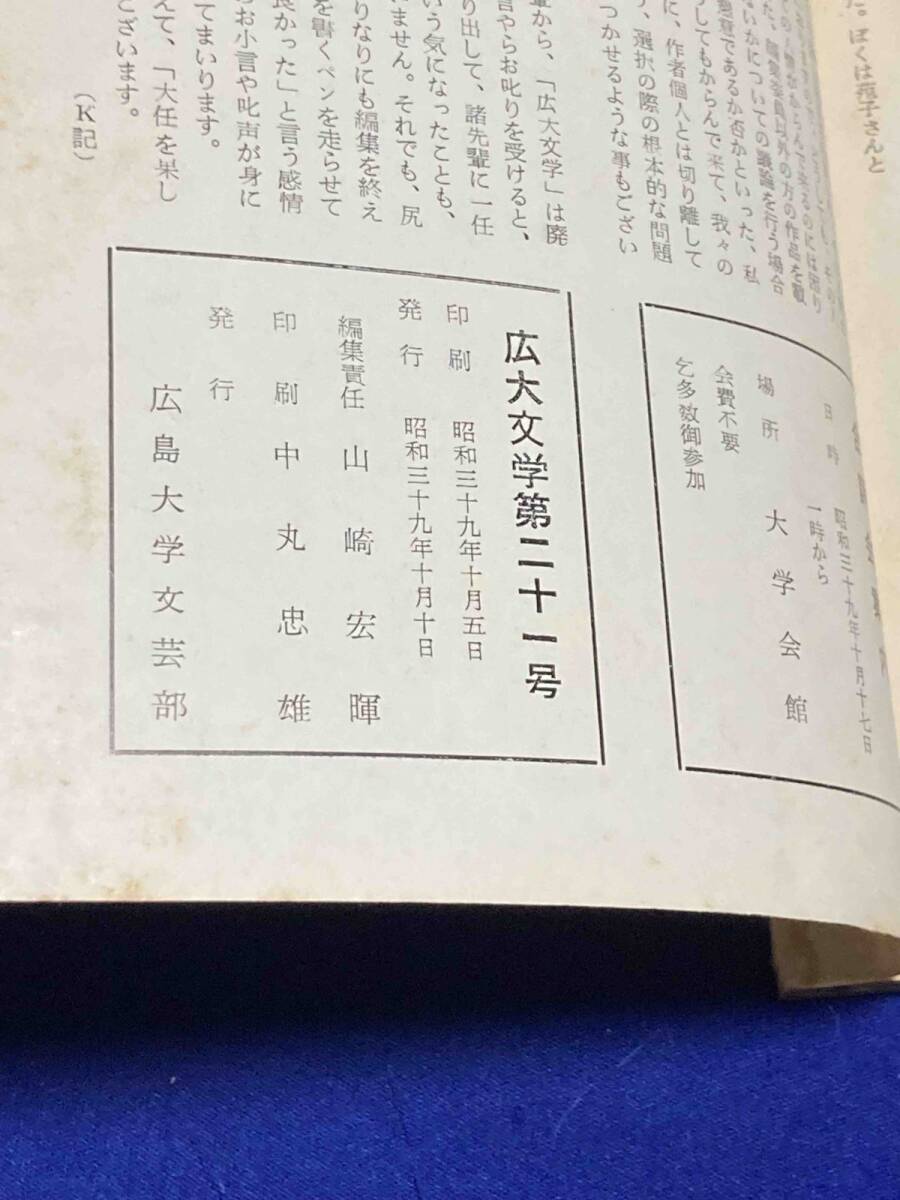 た。ぼくは
ないかについての議論を行う場合
怠意であるか否かといった、私
うしてもからんで来て、我々の
に、作者個人とは切り離して
り、選択の際の根本的な問題
つかせるような事もござい
輩から、「広大文学」は廃
言やらお叱りを受けると、
り出して、諸先輩に一任
いう気になったことも、
ません。それでも、尻
りなりにも編集を終え
を書くペンを走らせて
良かった」と言う感情
お小言や叱声が身に
てまいります。
えて、「大任を果し
ございます。
（K記）
日時　昭和三十九年十月十七日
一時から
場所　大学会館
会費不要
乞多数御参加
広大文学第二十一号
印刷　昭和三十九年十月五日
発行　昭和三十九年十月十日
編集責任　山崎宏暉
印刷　中丸忠雄
発行
広島大学文芸部